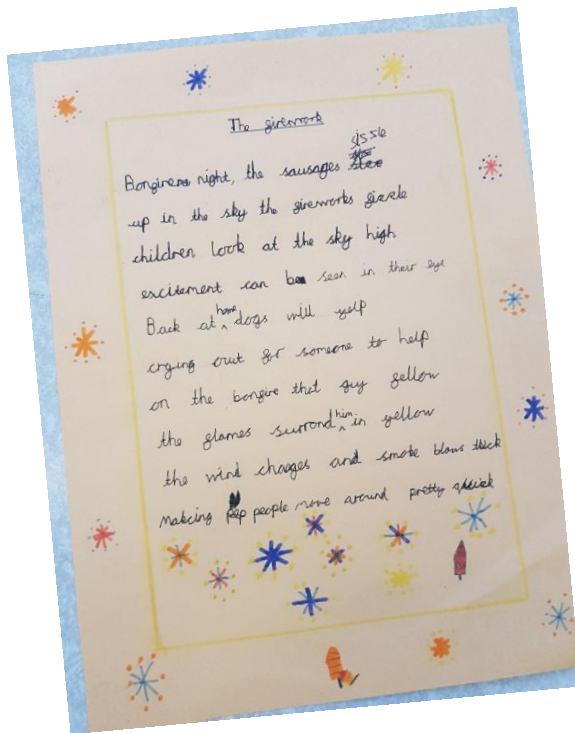 The firework
Bonfire night, the sausages sissle
up in the sky the fireworks fizzle
children look at the sky high
excitement can be seen in their eye
Back at home dogs will yelp
crying out for someone to help
on the bonfire that guy fellow
the flames surrond him in yellow
the wind chages and smoke blows thick
making people move around pretty quick